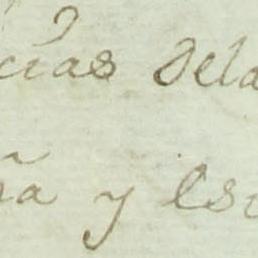 cias dela
ña y esc